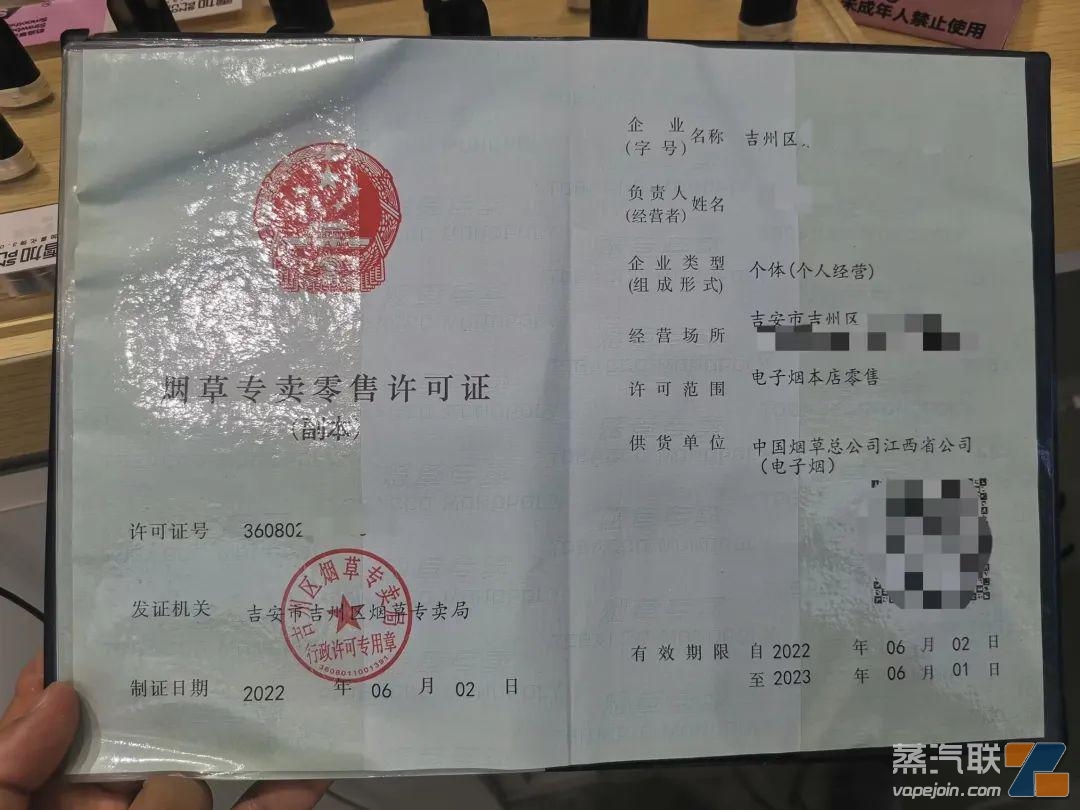 未成年人禁止使用
雪加
烟草专卖零售许可证
(副本)
许可证号 360802
发证机关 吉安市吉州区烟草专卖局
吉州区烟草专卖局
行政许可专用章
3608011001391
制证日期 2022 年 06 月 02 日
企业名称 吉州区
(字号)
负责人姓名
(经营者)
企业类型 个体(个人经营)
(组成形式)
经营场所 吉安市吉州区
许可范围 电子烟本店零售
供货单位 中国烟草总公司江西省公司
(电子烟)
有效期限 自 2022 年 06 月 02 日
至 2023 年 06 月 01 日
蒸汽联
vapejoin.com